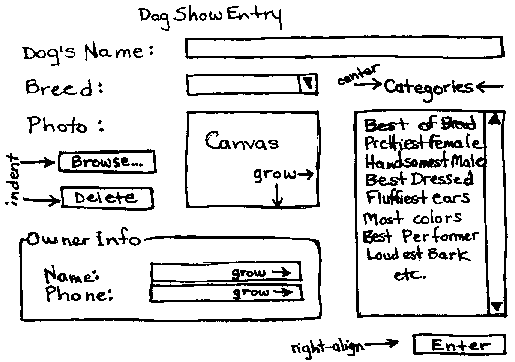 Dog Show Entry
Dog's Name:
Breed:
center
Categories
Photo:
Canvas
grow
indent
Browse...
Delete
Best of Breed
Prettiest Female
Handsomest Male
Best Dressed
Fluffiest ears
Most colors
Best Performer
Loudest Bark
etc.
Owner Info
Name:
grow
Phone:
grow
right-align
Enter